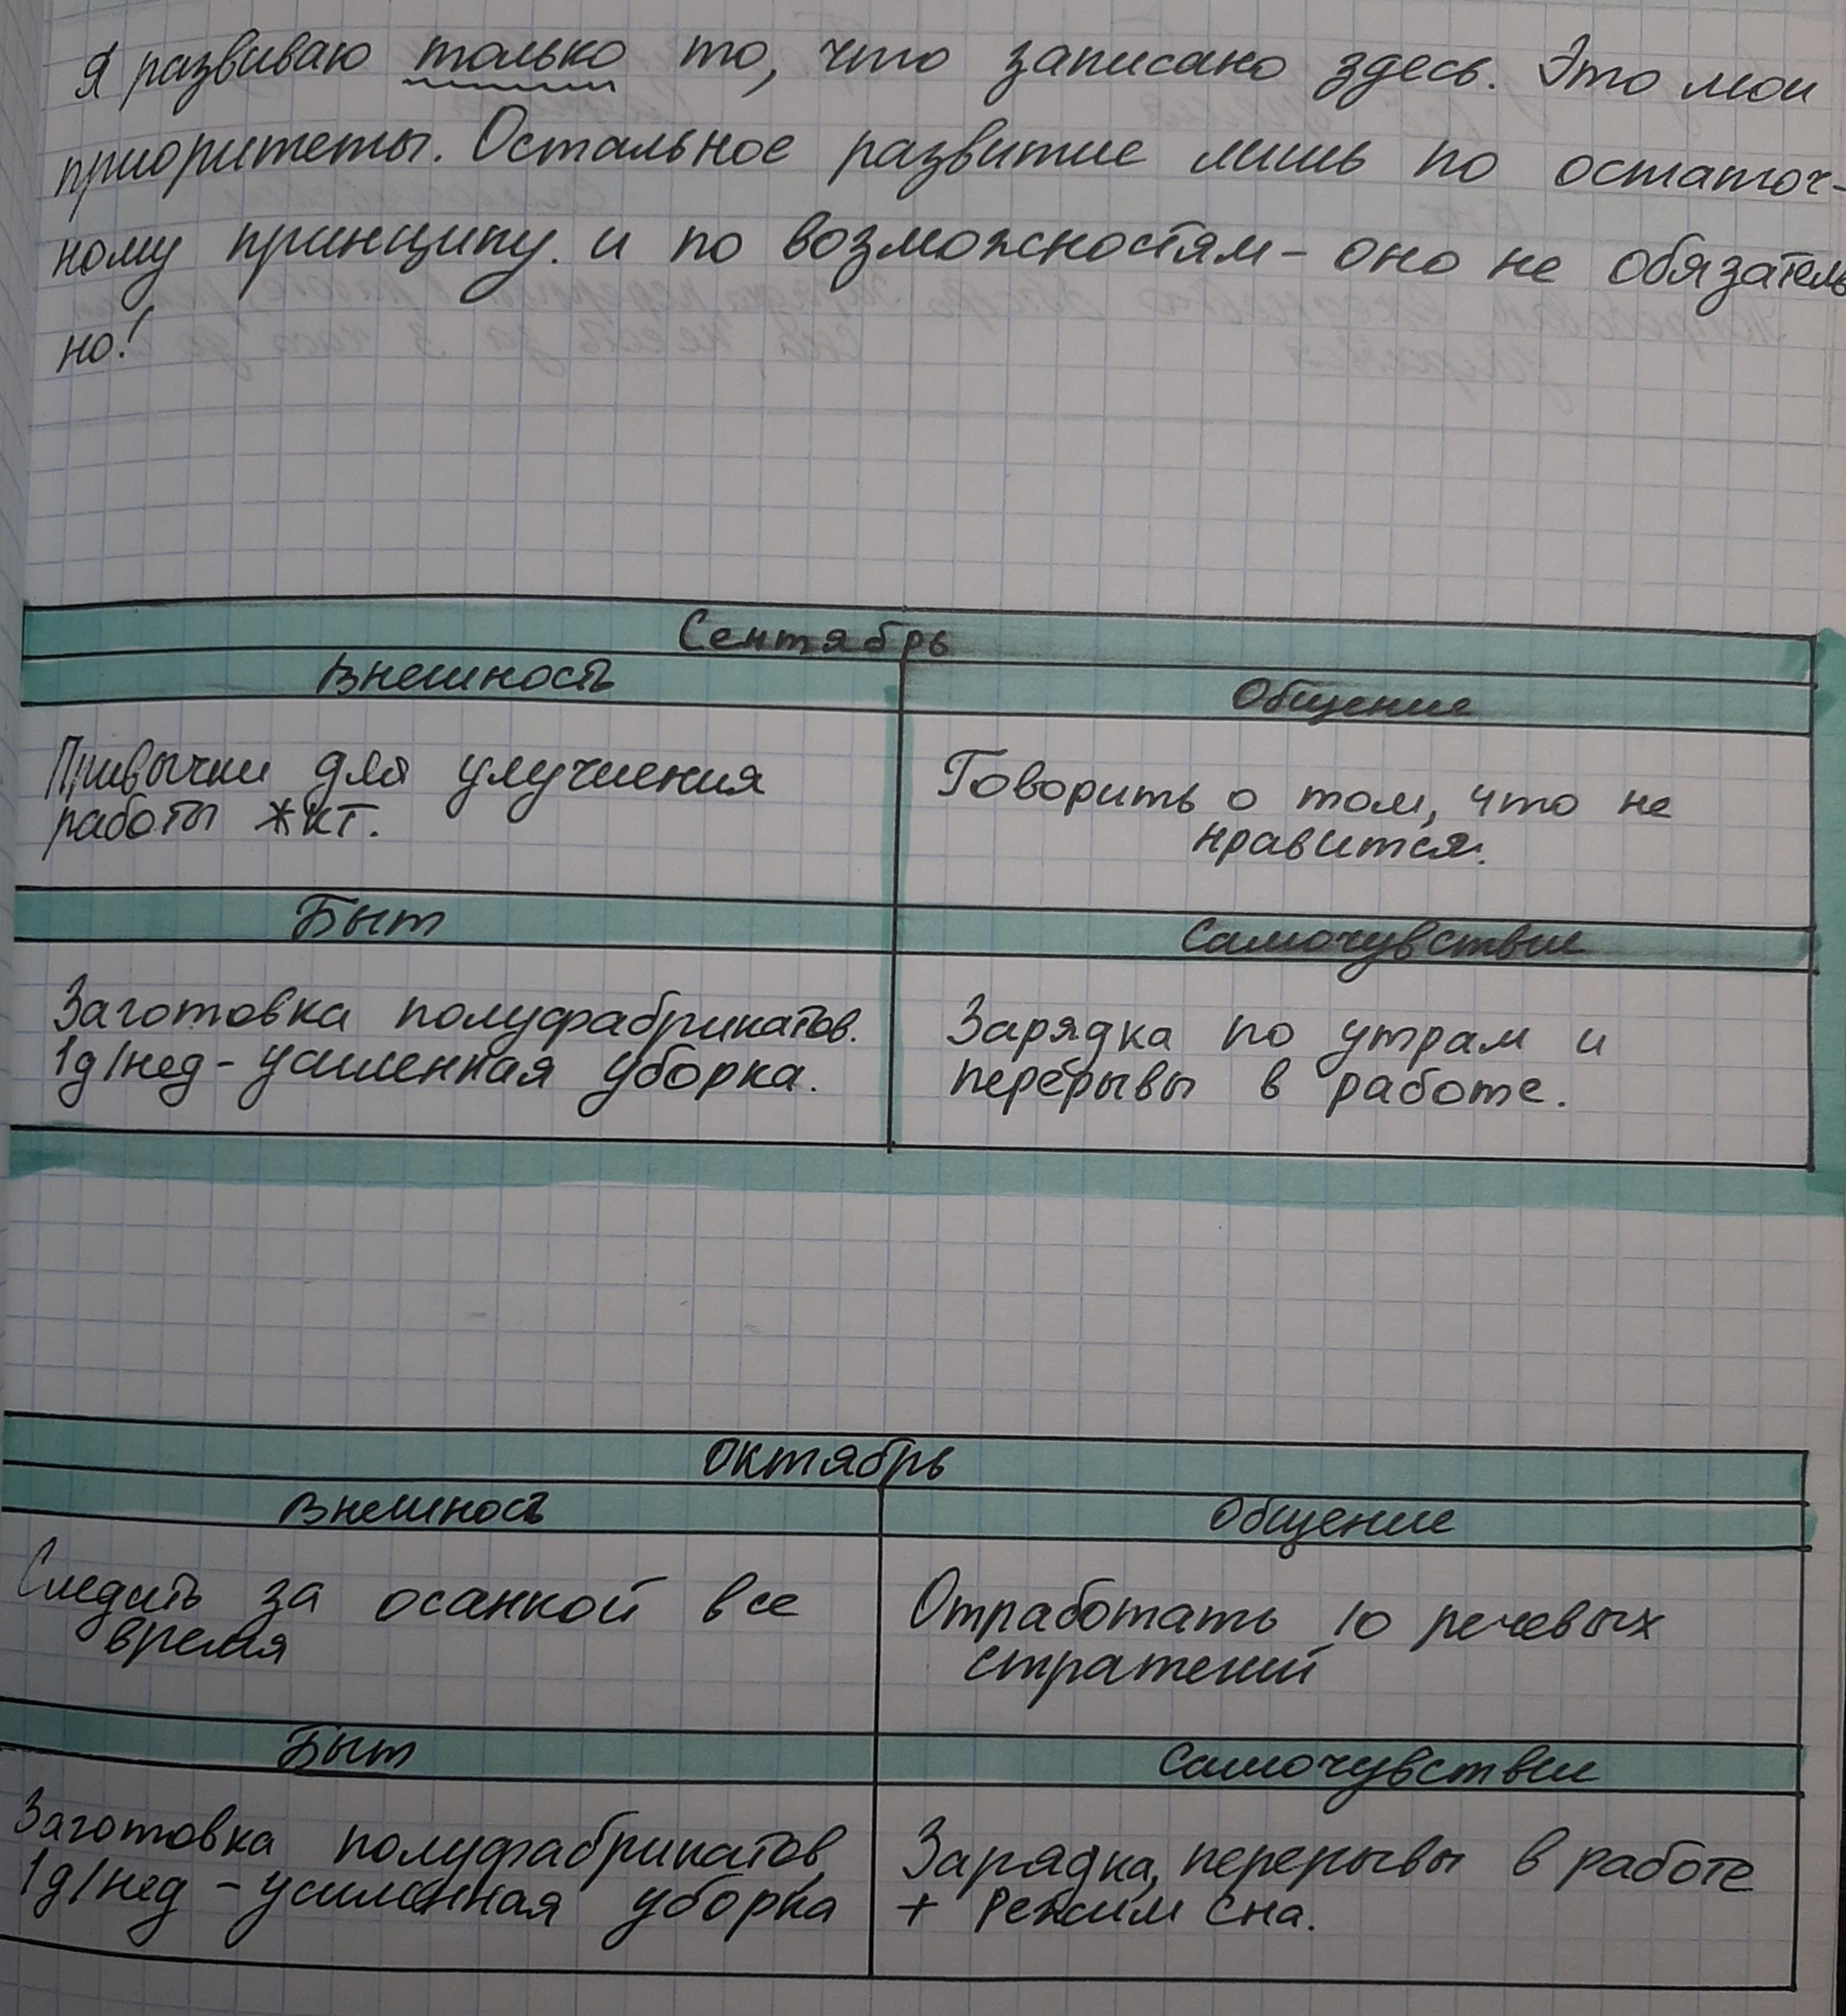 Я развиваю только то, что записано здесь. Это мои
приоритеты. Остальное развитие лишь по остаточ-
ному принципу. и по возможностям - оно не обязатель
но!
Сентябрь
Внешность
Общение
Привычки для улучшения
работы ЖКТ.
Говорить о том, что не
нравится.
Быт
Самочувствие
Заготовка полуфабрикатов.
1д/нед - усиленная уборка.
Зарядка по утрам и
перерывы в работе.
Октябрь
Внешность
Общение
Следить за осанкой все
время
Отработать 10 речевых
стратегий
Быт
Самочувствие
Заготовка полуфабрикатов,
1д/нед - усиленная уборка
Зарядка, перерывы в работе
+ Режим сна.